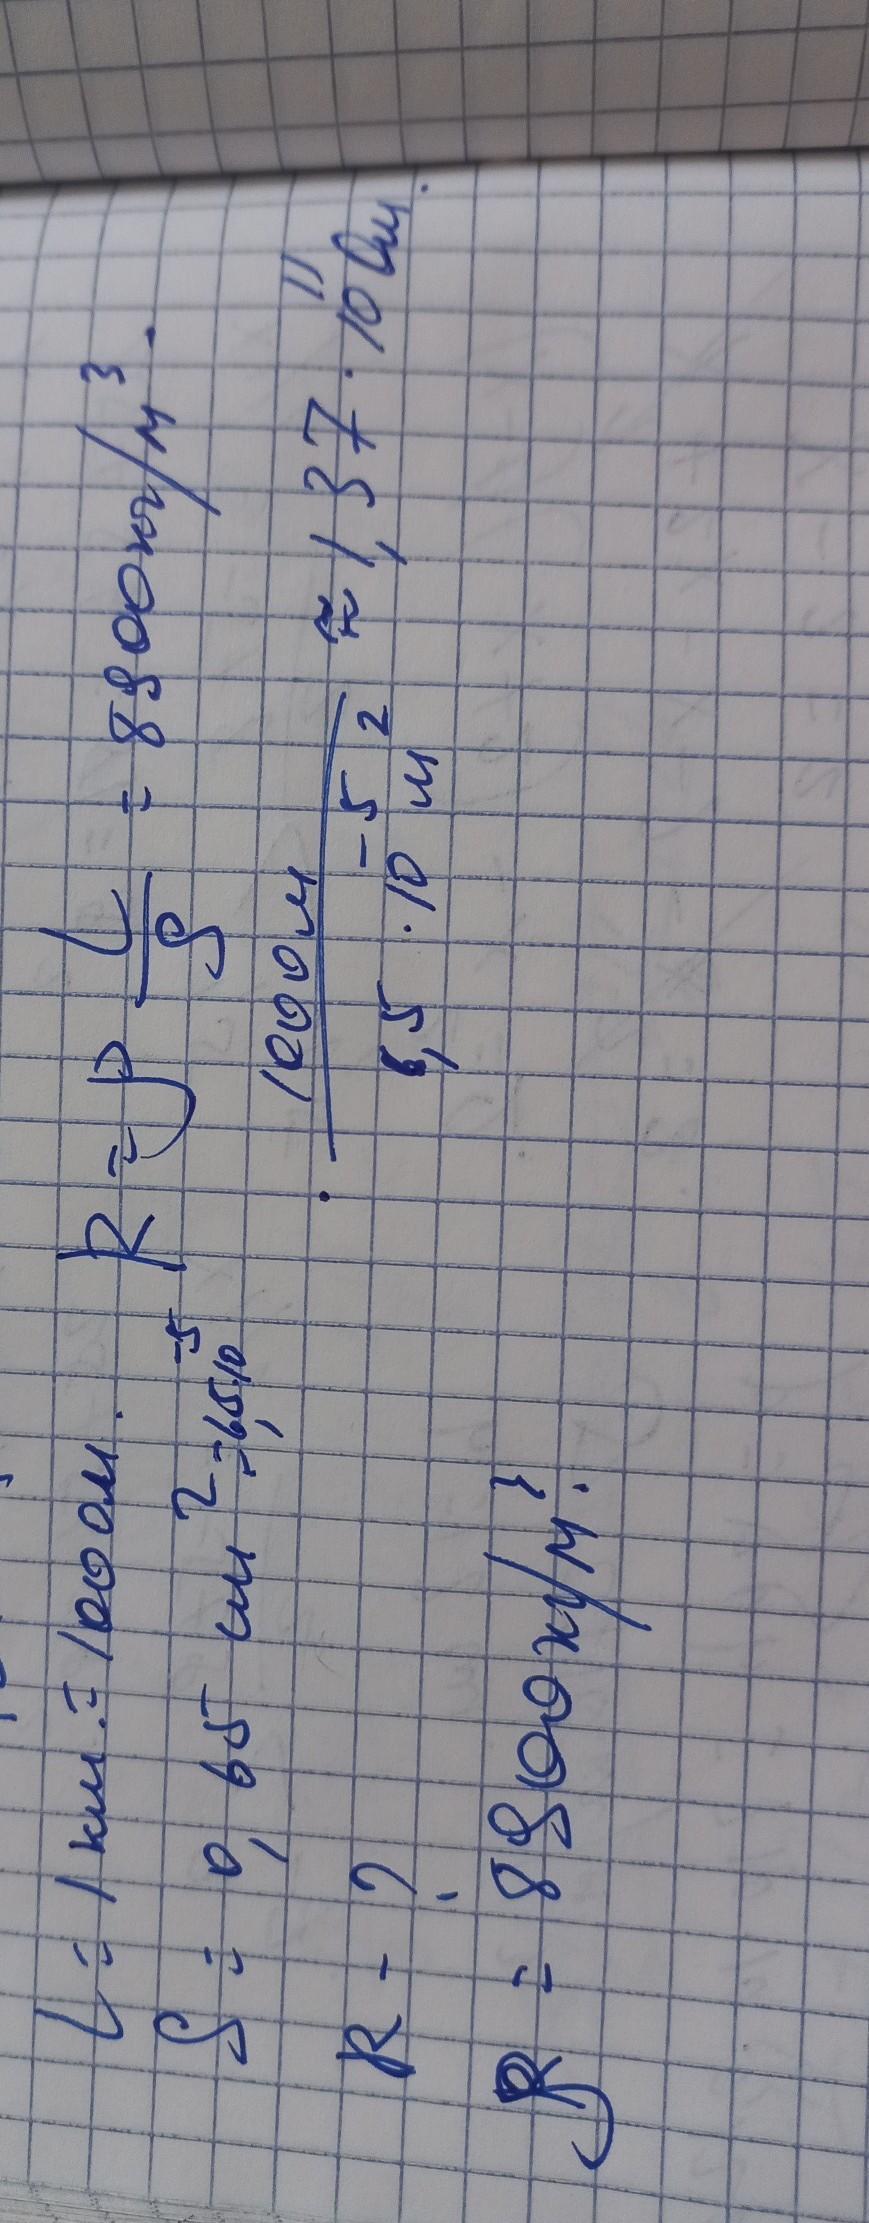 L = 1 км. = 1000 м.
S = 0,65 см² = 6,5·10⁻⁵
R - ?
ρ = 8900 кг/м³.
R = ρ L/S = 8900 кг/м³ ·
· 1000 м / 6,5 · 10⁻⁵ м² ≈ 1,37 · 10¹¹ Ом.